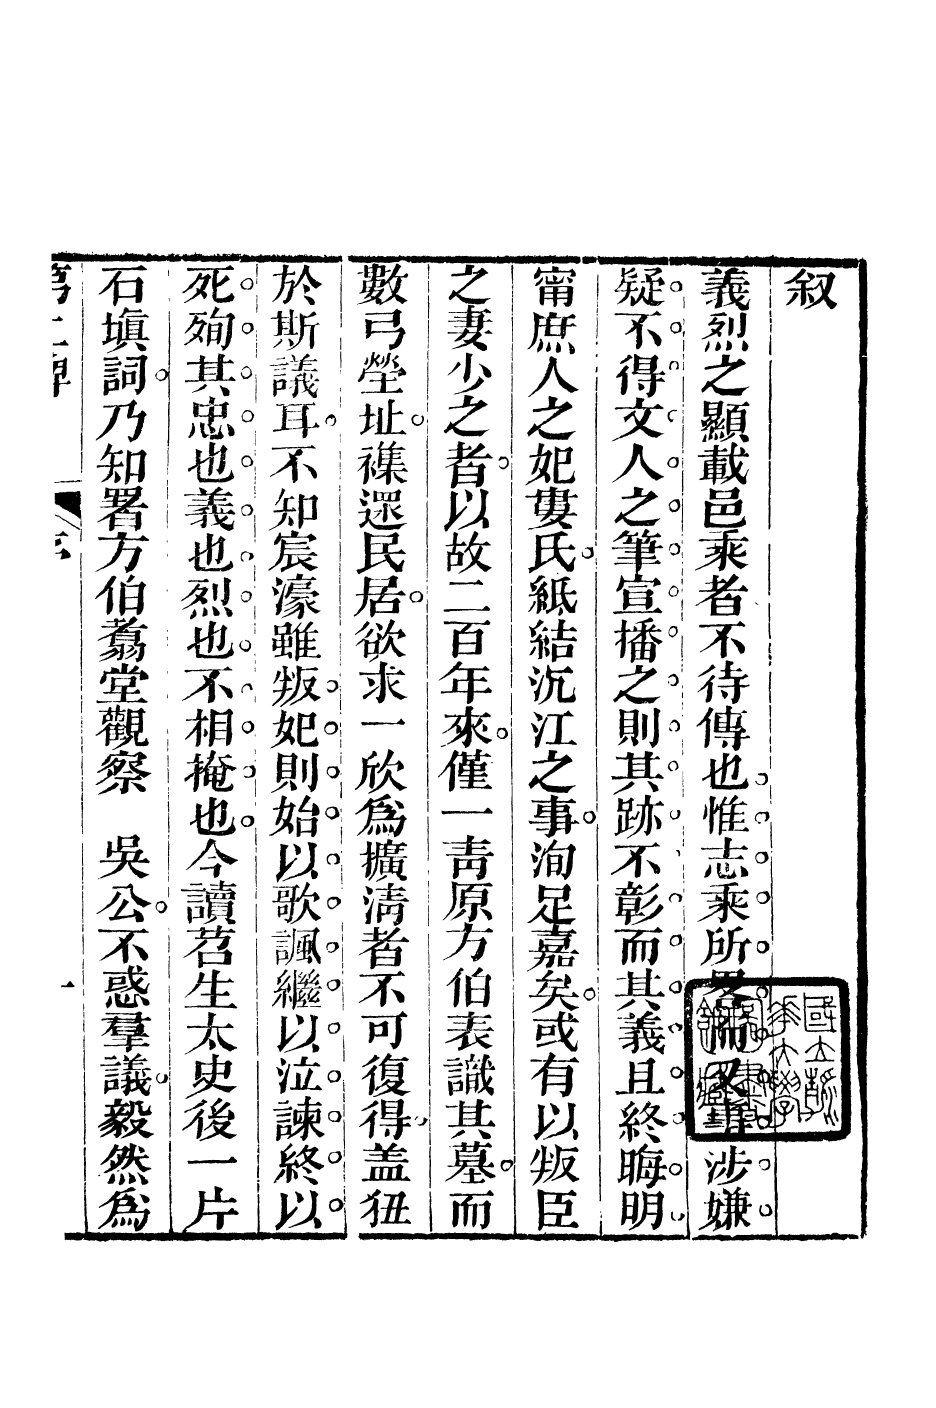 叙
義烈之顯載邑乘者不待傳也惟志乘所畧而又事涉嫌
疑不得文人之筆宣播之則其跡不彰而其義且終晦明
甯庶人之妃婁氏紙結沉江之事洵足嘉矣或有以叛臣
之妻少之者以故二百年來僅一靑原方伯表識其墓而
數弓塋址襍還民居欲求一欣爲擴淸者不可復得盖狃
於斯議耳不知宸濠雖叛妃則始以歌諷繼以泣諫終以
死殉其忠也義也烈也不相掩也今讀苕生太史後一片
石塡詞乃知署方伯翥堂觀察 吳公不惑羣議毅然爲
第二碑 序 一
國立